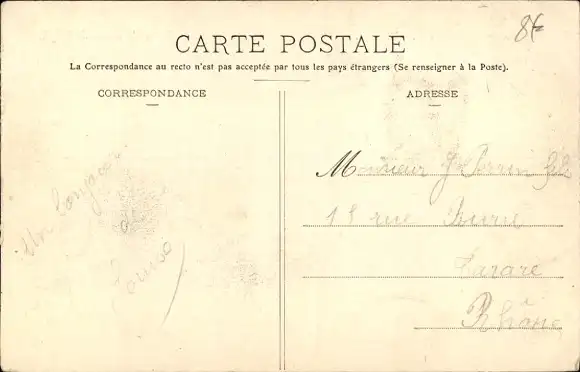 8f
CARTE POSTALE
La Correspondance au recto n'est pas acceptée par tous les pays étrangers (Se renseigner à la Poste).
CORRESPONDANCE
ADRESSE
Un bonjour
de
Monsieur J Perrin fils
18 rue
Tarare
Rhône